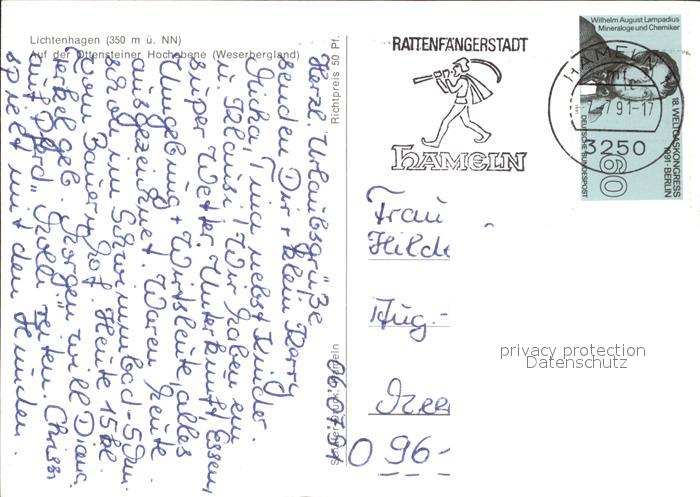 Lichtenhagen (350 m ü. NN)
Auf der Ottensteiner Hochebene (Weserbergland)
Herzl. Urlaubsgrüße
senden Dir + klein Karry
Micha, Tina nebst Kinder
u. Klausi! Wir haben ein
super Wetter, Unterkunft, Essen,
Umgebung + Wirtsleute, alles
ausgezeichnet. Waren heute
schon im Schwimmbad - 5 Dm.
vom Bauernhof. Heute 15
Ferkel geb. Morgen will Diana
auf Pferd "Rolli" reiten. Chrissi
spielt mit den Hunden.
06.07.91
Richtpreis 50 Pf.
RATTENFÄNGERSTADT
HAMELN
HAMELN
-7.91-17
3250
Wilhelm August Lampadius
Mineraloge und Chemiker
18. WELTGASKONGRESS
1991 · BERLIN
DEUTSCHE BUNDESPOST
60
Frau
Hilde
Aug.-
O 96-
privacy protection
Datenschutz